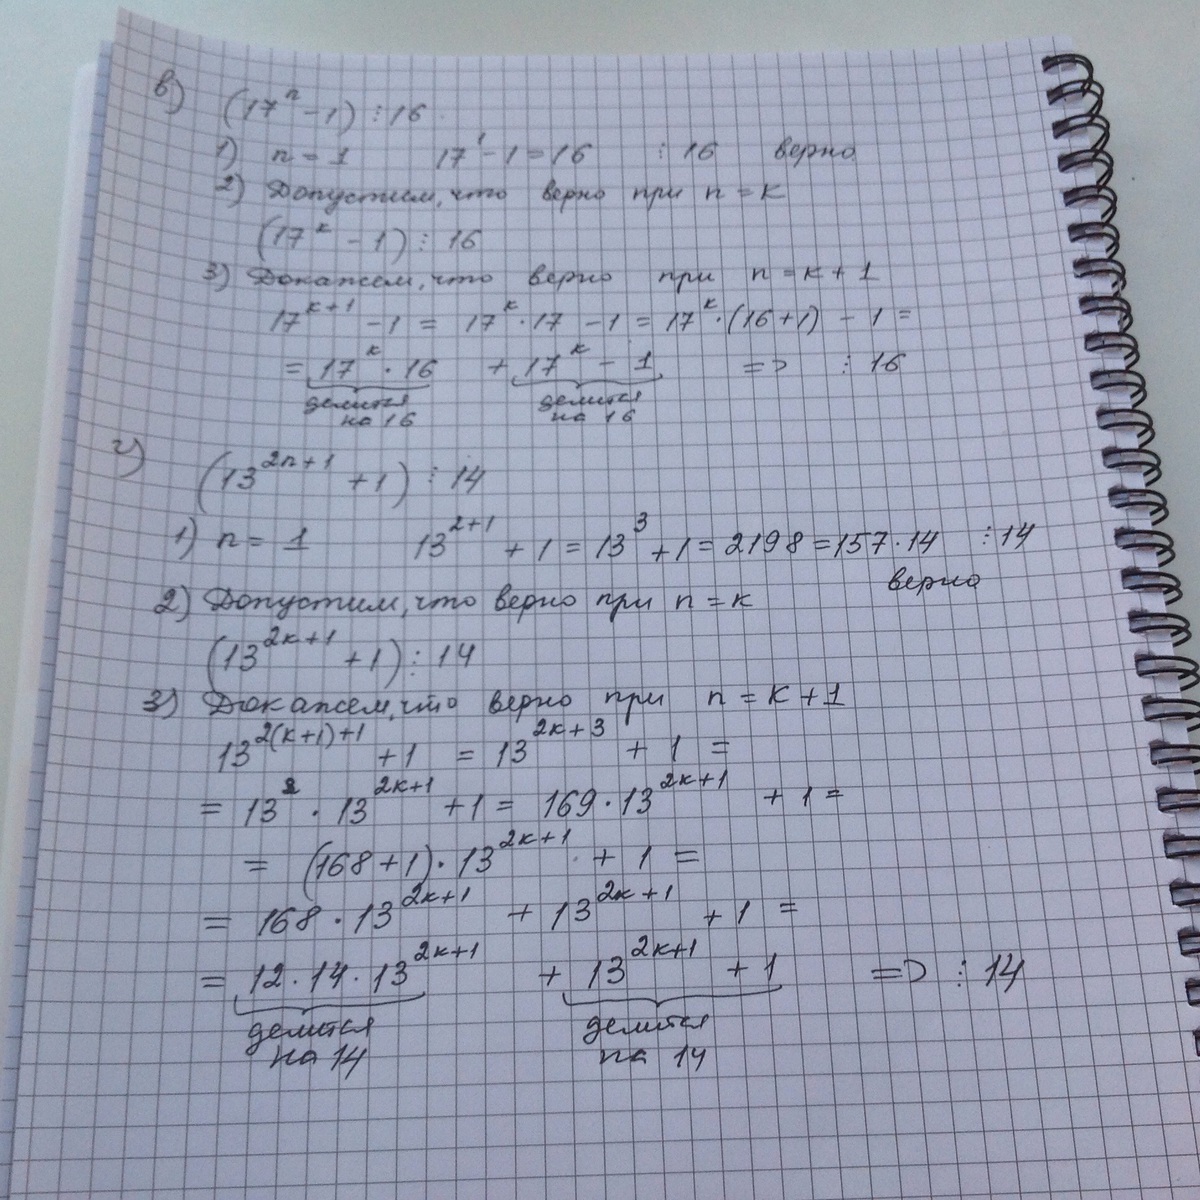 в) (17ⁿ - 1) ⋮ 16
1) n = 1 17¹ - 1 = 16 ⋮ 16 верно
2) Допустим, что верно при n = к
(17ᵏ - 1) ⋮ 16
3) Докажем, что верно при n = к + 1
17ᵏ⁺¹ - 1 = 17ᵏ · 17 - 1 = 17ᵏ · (16+1) - 1 =
= 17ᵏ · 16 + 17ᵏ - 1 => ⋮ 16
делится делится
на 16 на 16
г) (13²ⁿ⁺¹ + 1) ⋮ 14
1) n = 1 13²⁺¹ + 1 = 13³ + 1 = 2198 = 157 · 14 ⋮ 14
верно
2) Допустим, что верно при n = к
(13²ᵏ⁺¹ + 1) ⋮ 14
3) Докажем, что верно при n = к + 1
13²⁽ᵏ⁺¹⁾⁺¹ + 1 = 13²ᵏ⁺³ + 1 =
= 13² · 13²ᵏ⁺¹ + 1 = 169 · 13²ᵏ⁺¹ + 1 =
= (168 + 1) · 13²ᵏ⁺¹ + 1 =
= 168 · 13²ᵏ⁺¹ + 13²ᵏ⁺¹ + 1 =
= 12 · 14 · 13²ᵏ⁺¹ + 13²ᵏ⁺¹ + 1 => ⋮ 14
делится делится
на 14 на 14